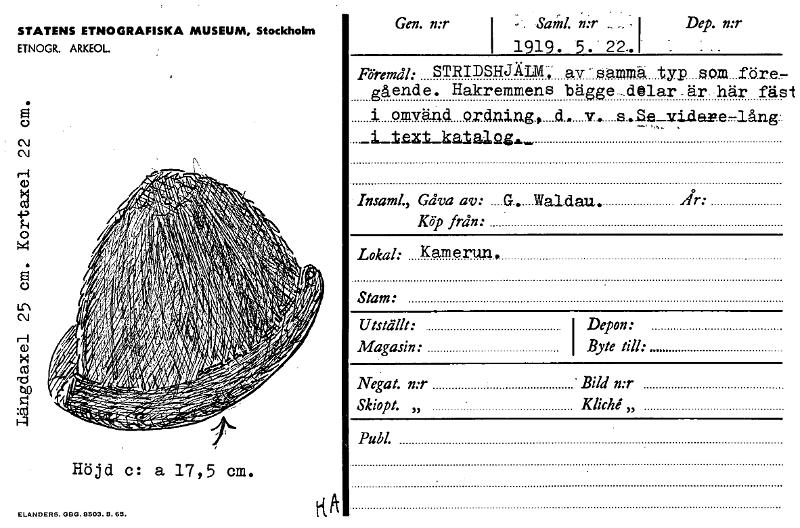 STATENS ETNOGRAFISKA MUSEUM, Stockholm
ETNOGR. ARKEOL.
Längdaxel 25 cm. Kortaxel 22 cm.
Höjd c: a 17,5 cm.
ELANDERS. GBG. 8503. 8. 65.
HA
Gen. n:r
Saml. n:r
Dep. n:r
1919. 5. 22.
Föremål: STRIDSHJÄLM, av samma typ som före-
gående. Hakremmens bägge delar är här fäst
i omvänd ordning, d. v. s.Se vidare lång
i text katalog.
Insaml., Gåva av: G. Waldau. År:
Köp från:
Lokal: Kamerun.
Stam:
Utställt: Depon:
Magasin: Byte till:
Negat. n:r Bild n:r
Skiopt. „ Kliché „
Publ.